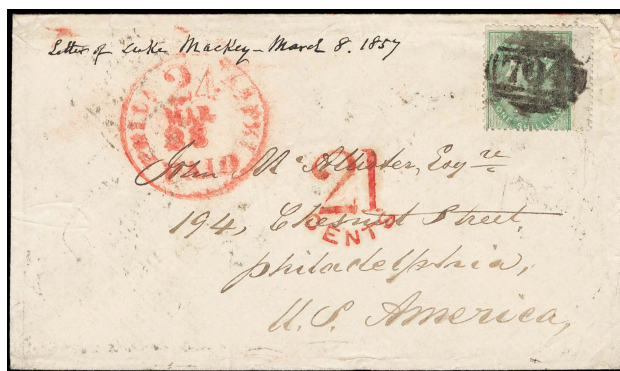 Letter of Luke Mackey - March 8. 1857
24
MAR
PAID
ONE SHILLING
John McAllister, Esqre
21
CENTS
194, Chesnut Street.
Philadelphia,
U.S. America,